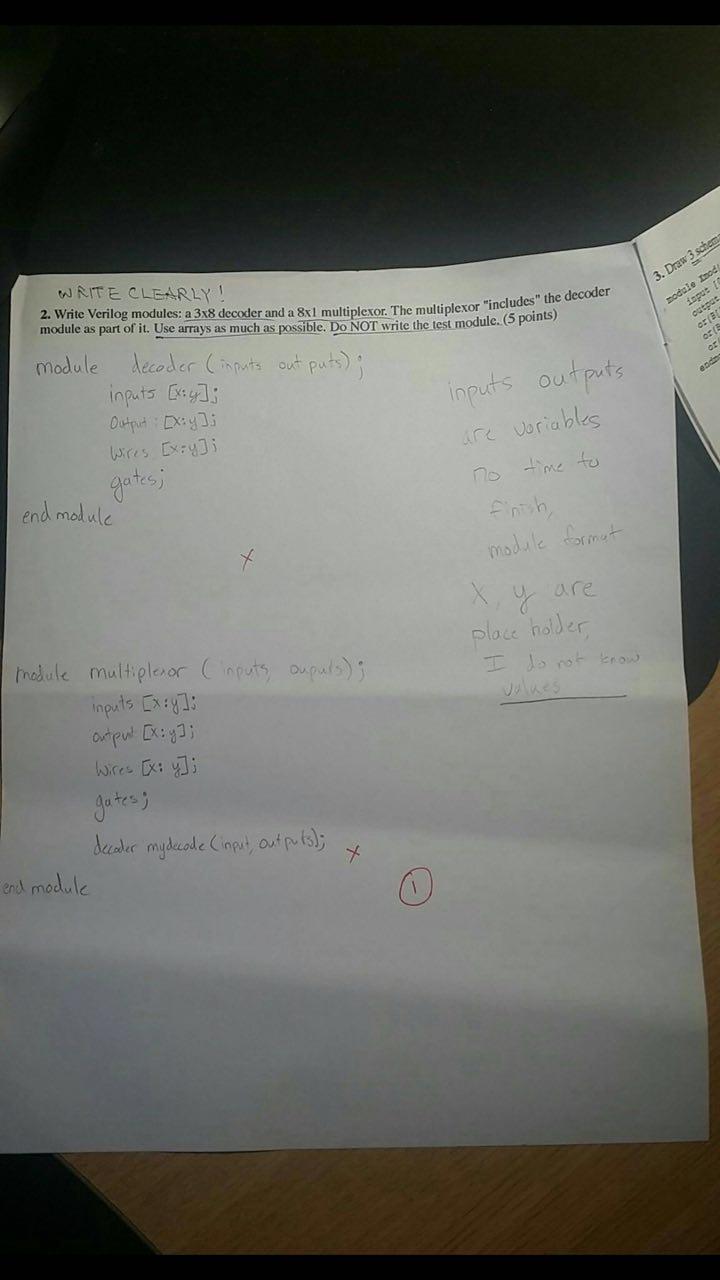 WRITE CLEARLY!
2. Write Verilog modules: a 3x8 decoder and a 8x1 multiplexor. The multiplexor "includes" the decoder
module as part of it. Use arrays as much as possible. Do NOT write the test module. (5 points)
module decoder (inputs out puts);
inputs [x:y];
Output : [x:y];
Wires [x:y];
gates;
end module
x
module multiplexor (inputs, ouputs);
inputs [x:y];
output [x:y];
Wires [x: y];
gates;
decoder mydecode (input, outputs);
x
end module
1
inputs outputs
are variables
no time to
finish,
module format
X, y are
place holder,
I do not know
values
3. Draw 3 schema
module
input [
output
or(B[
or(B
or(
or
endm